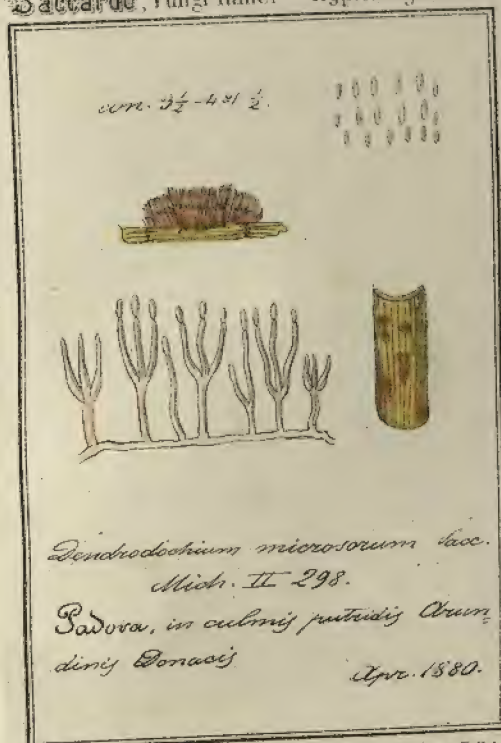 Saccardo, Fungi
con. 3½-4 ≈ ½.
Dendrodochium microsorum Sacc.
Mich. II 298.
Padova, in culmis putridis Arun=
dinis Donacis
Apr. 1880.